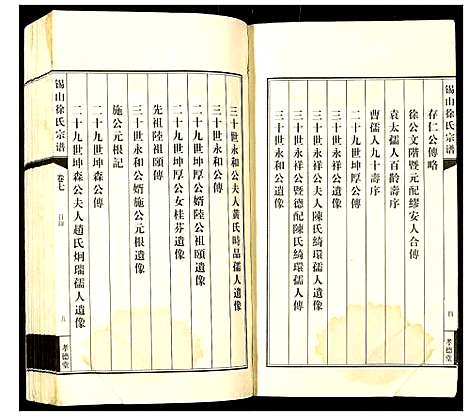 锡山徐氏宗谱
四
孝德堂
存仁公傳略
徐公文階暨元配繆安人合傳
袁太孺人百齡壽序
曹孺人九十壽序
三十世永祥公夫人陳氏綺環孺人遺像
三十世永祥公暨德配陳氏綺環孺人傳
三十世永和公遺像
三十世永和公夫人黃氏時品孺人遺像
三十世永和公傳
二十九世坤厚公婿陸公祖頤遺像
二十九世坤厚公女桂芬遺像
先祖陸祖頤傳
三十世永和公婿施公元根遺像
施公元根記
二十九世坤森公傳
二十九世坤森公夫人趙氏炯瑞孺人遺像
锡山徐氏宗谱
卷七
目錄
五
孝德堂